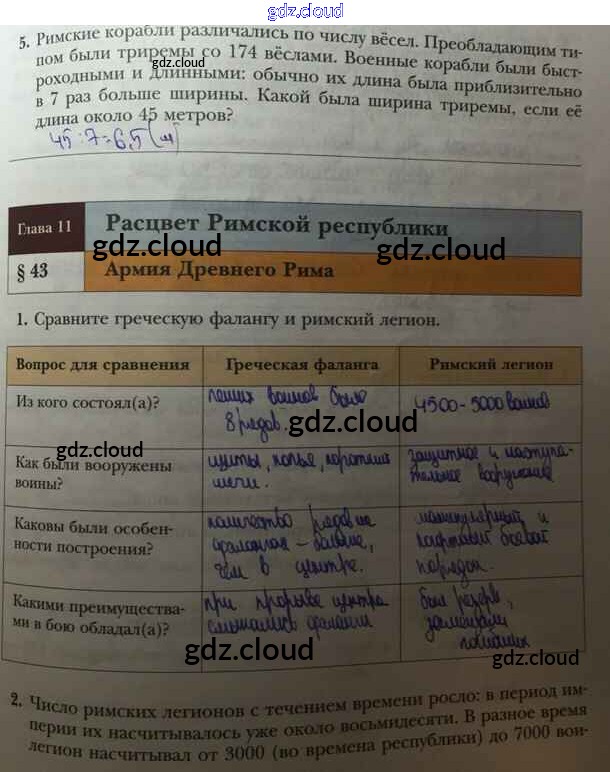 gdz.cloud
5. Римские корабли различались по числу вёсел. Преобладающим ти-
пом были триремы со 174 вёслами. Военные корабли были быст-
gdz.cloud
роходными и длинными: обычно их длина была приблизительно
в 7 раз больше ширины. Какой была ширина триремы, если её
gdz.cloud
длина около 45 метров?
45:7=6,5 (м)
Глава 11
Расцвет Римской республики
gdz.cloud
gdz.cloud
§ 43
Армия Древнего Рима
1. Сравните греческую фалангу и римский легион.
Вопрос для сравнения
Греческая фаланга
Римский легион
Из кого состоял(а)?
пеших воинов было
8 рядов.
4500-5000 воинов
gdz.cloud
gdz.cloud
Как были вооружены
воины?
щиты, копье, короткие
мечи.
защитное и наступа-
тельное вооружение
Каковы были особен-
ности построения?
количество рядов на
- больше,
чем в центре.
манипулярный и
боевой
порядок.
Какими преимущества-
ми в бою обладал(а)?
при прорыве центра
смыкались фаланги
был резерв,
заменяли
погибших
gdz.cloud
gdz.cloud
2. Число римских легионов с течением времени росло: в период им-
перии их насчитывалось уже около восьмидесяти. В разное время
легион насчитывал от 3000 (во времена республики) до 7000 вои-